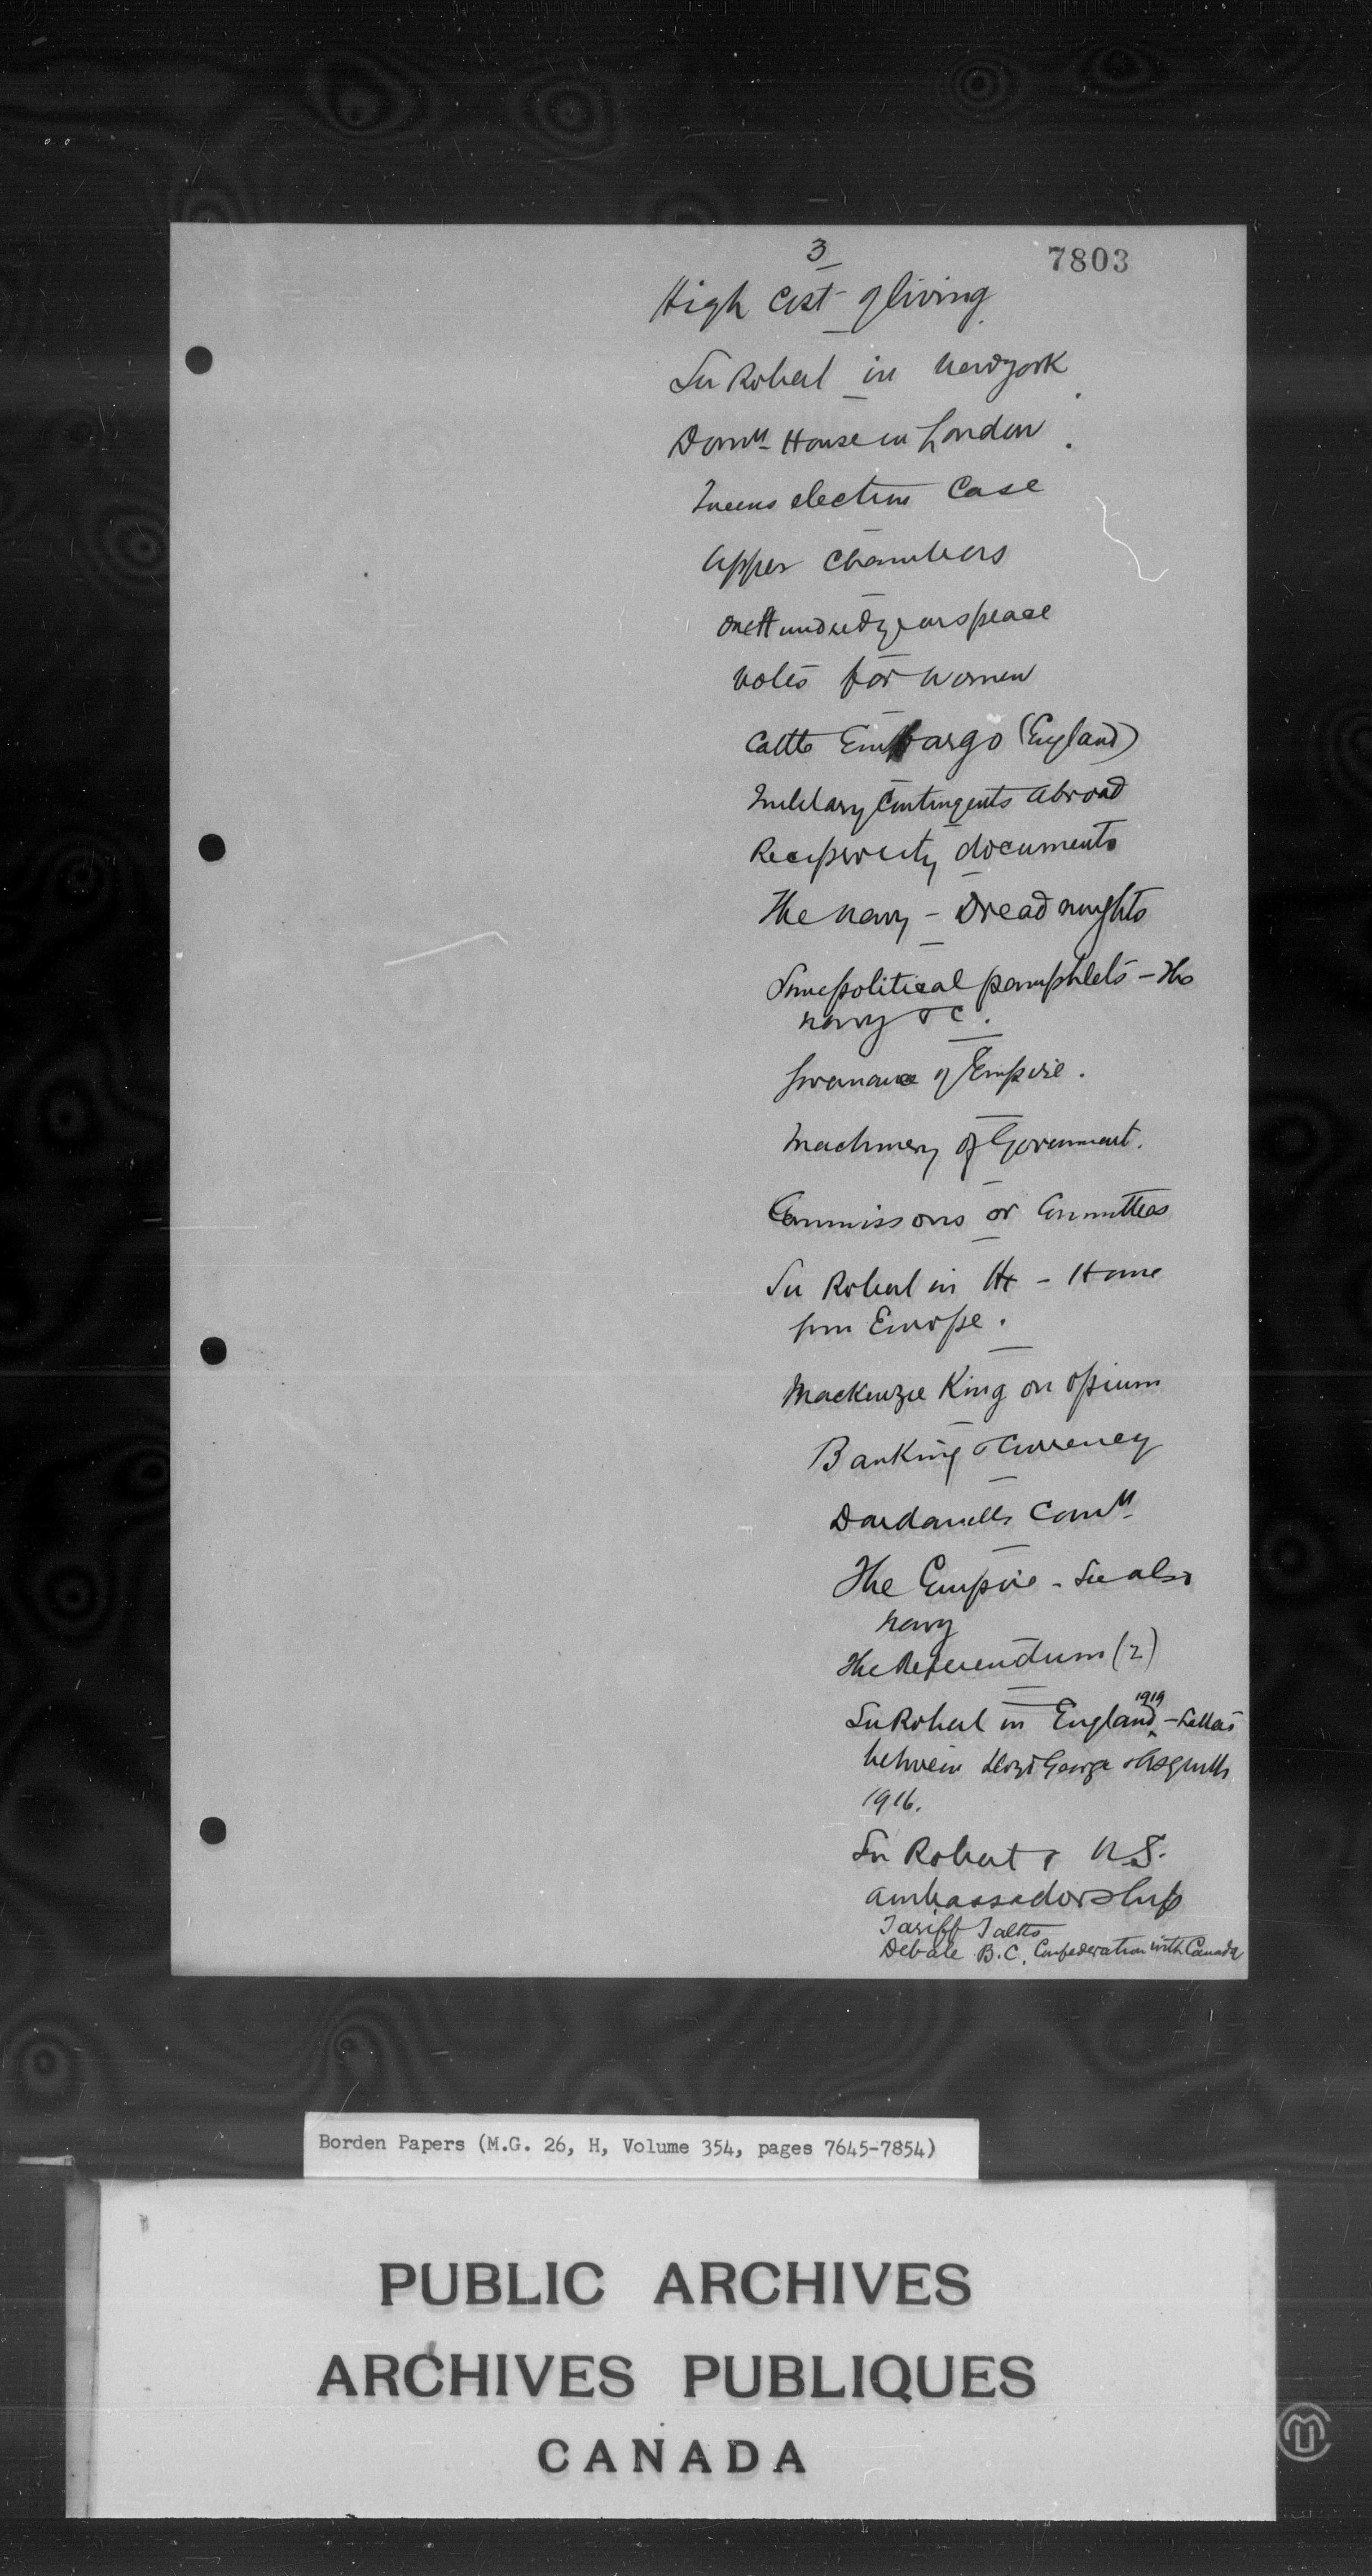 3
7803
High Cost of living
Sir Robert in New York
Domn House in London
Queens election Case
Upper Chambers
One Hundred years peace
Votes for Women
Cattle Embargo (England)
Military Contingents Abroad
Reciprocity documents
The Navy - Dreadnaughts
Some political pamphlets - The
Navy &c.
of Empire.
Machinery of Government.
Commissions or Committees
Sir Robert in Hx - Home
from Europe.
Mackenzie King on Opium
Banking & Currency
Dardanelles Comn
The Empire - See also
Navy
The Referendum (2)
Sir Robert in England 1919 - Letters
between Lloyd George & Asquith
1916.
Sir Robert & U.S.
Ambassadorship
Tariff Talks
Debate B.C. Confederation with Canada
Borden Papers (M.G. 26, H, Volume 354, pages 7645-7854)
PUBLIC ARCHIVES
ARCHIVES PUBLIQUES
CANADA